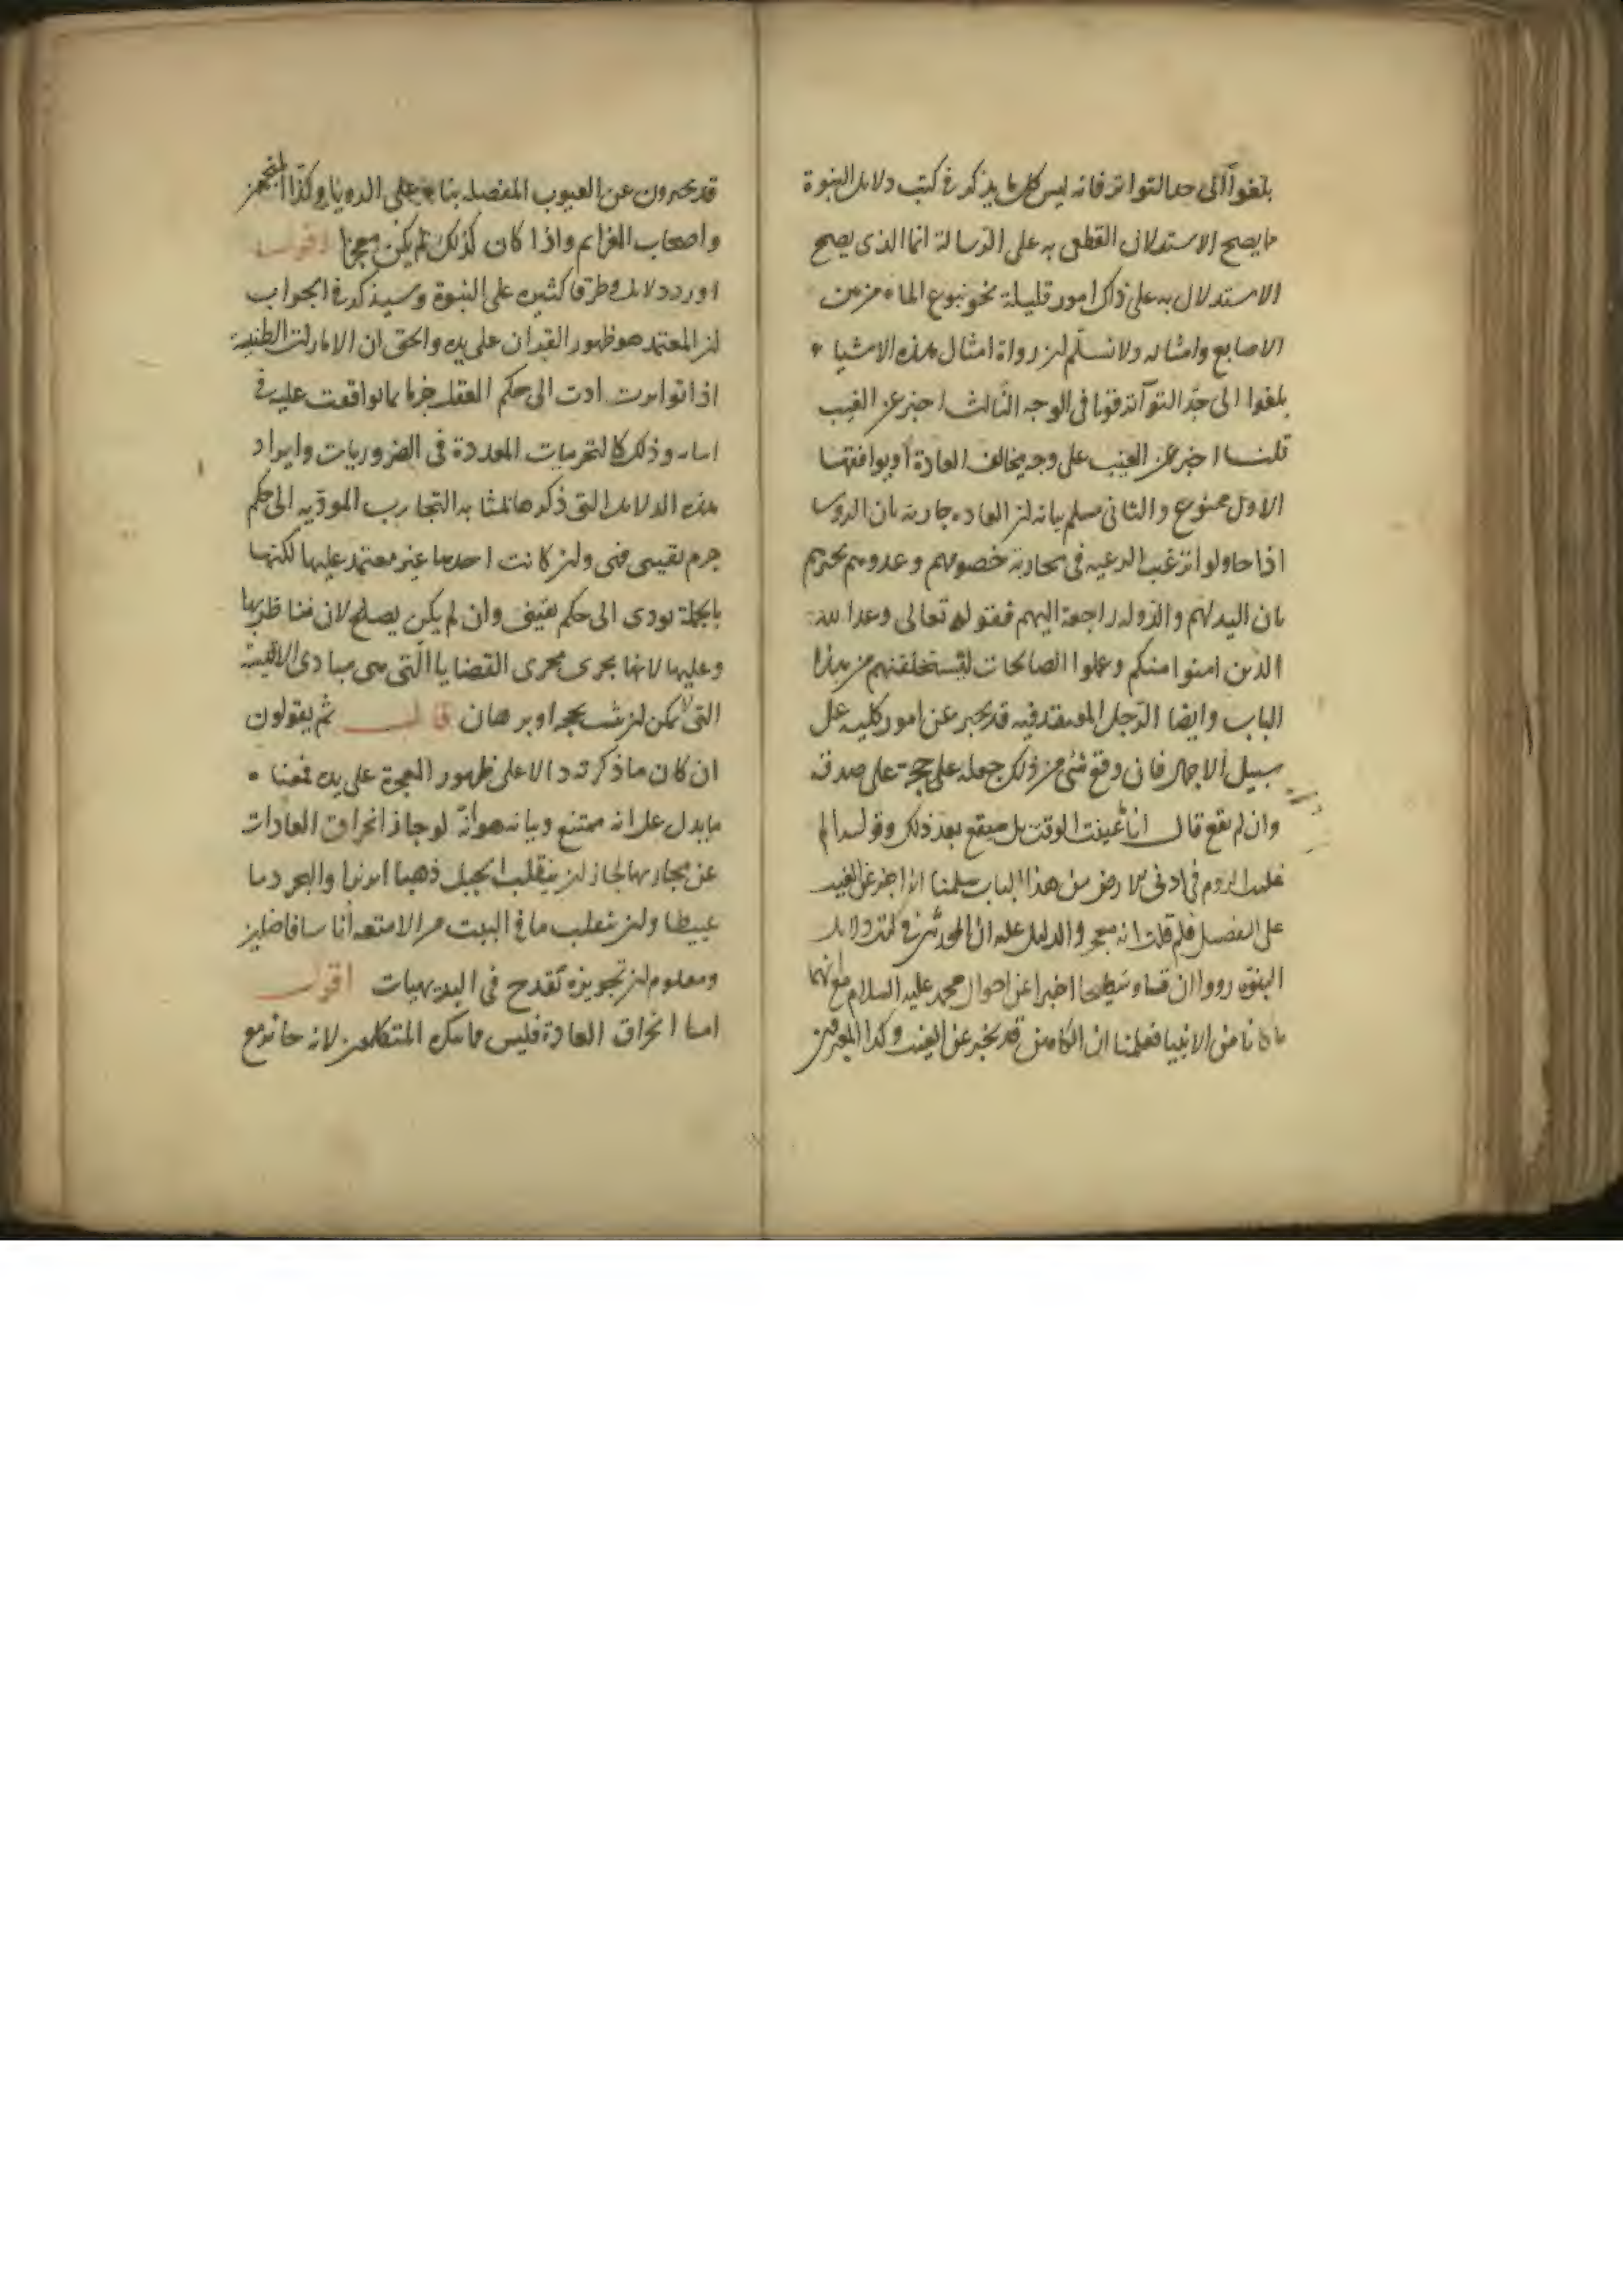 بلغوا الى حد التواتر فانه ليس كل ما يذكر فى كتب دلايل النبوة
ما يصح الاستدلال القطعى به على الرسالة انما الذى يصح
الاستدلال به على ذاك امور قليلة نحو نبوع الماء من بين
الاصابع وامثاله ولا نسلم ان رواة امثال هذه الاشياء
بلغوا الى حد التواتر قولنا فى الوجه الثالث اخبر عن الغيب
قلنا اخبر عن الغيب على وجه يخالف العادة او يوافقها
الاول ممنوع والثانى مسلم بيانه ان العاده جاريه بان الروسا
اذا حاولوا ترغيب الرعيه فى محاربة خصومهم وعدوهم يخبرهم
بان اليد لهم والدوله راجعة اليهم فقوله تعالى وعد الله
الذين امنوا منكم وعملوا الصالحات ليستخلفنهم من هذا
الباب وايضا الرجل المعتقد فيه قد يخبر عن امور كليه على
سبيل الاجمال فان وقع شئ من ذلك جعله على حجة على صدقه
وان لم يقع قال انا ما عينت الوقت بل سيقع بعد ذلك وقوله الم
غلبت الروم فى ادنى الارض من هذا الباب سلمنا انه اخبر عن الغيب
على التفصيل فلم قلت انه معجز والدليل عليه ان المحدثين فى كتب دلايل
النبوة رووا ان قسا وسطيحا اخبرا عن احوال محمد عليه السلام مع انهما
ما كانا من الانبيا فعلمنا ان الكاهن قد يخبر عن الغيب وكذا المعبرين
قد يخبرون عن الغيوب المفصله بناء على الرويا وكذا المنجمين
واصحاب العزايم واذا كان كذلك لم يكن معجزا اقول
اورد دلايل وطرقا كثيره على النبوة وسيذكر فى الجواب
ان المعتمد هو ظهور القران على يده والحق ان الامارات الظنية
اذا تواترت ادت الى حكم العقل جزما بما توافقت عليه فى
وذلك كالتجربيات المعدودة فى الضروريات وايراد
هذه الدلايل التى ذكرها مشابه التجارب المودية الى حكم
جزم يقينى فهى وان كانت احدها غير معتمد عليها لكنها
بالجملة تودى الى حكم يقينى وان لم يكن يصلح لان يناظر بها
وعليها لانها تجرى مجرى القضايا التى هى مبادى الاقيسة
التى لا يمكن ان تثبت بحجه او برهان قال ثم يقولون
ان كان ما ذكرته دالا على ظهور المعجزة على يده فمعنا
ما يدل على انه ممتنع وبيانه هو انه لو جاز انخراق العادات
عن مجاريها لجاز ان ينقلب الجبل ذهبا ابريزا والبحر دما
عبيطا وان ينقلب ما فى البيت من الامتعه اناسا فاضلين
ومعلوم ان تجويزه يقدح فى البديهيات اقول
اما انخراق العادة فليس مما ينكره المتكلمون لانه جائز مع